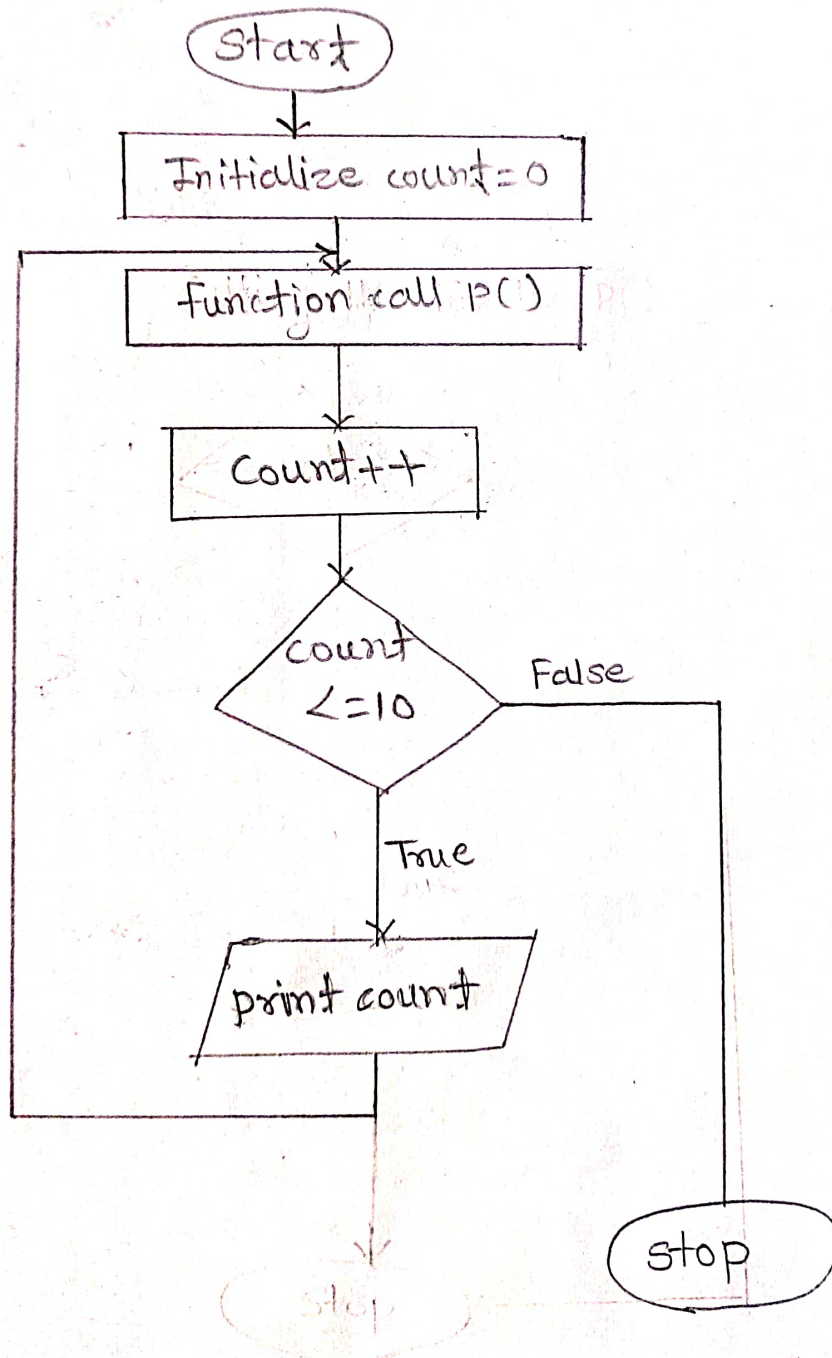 Start
Initialize count=0
function call P()
Count++
count
<=10
False
True
print count
stop
stop